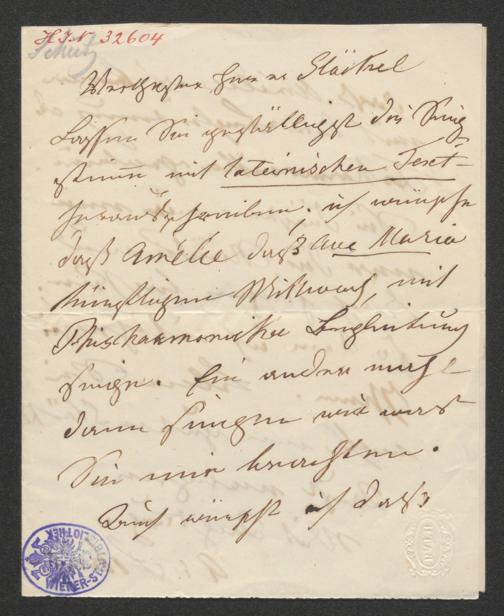 H.I.N. 32604
Schütz
Werthester Herr v Stöckel
Lassen Sie gefälligst die Sing
stimme mit lateinischen Text
herausschreiben. ich wünsche
daß Amélie daß Ave Maria
künftigen Mittwoch, mit
Phisharmonicka Begleitung
singe. Ein ander mahl
dann singen wir was
Sie mir brachten.
Auch wünscht ich daß
WIENER-ST BIBLIOTHEK